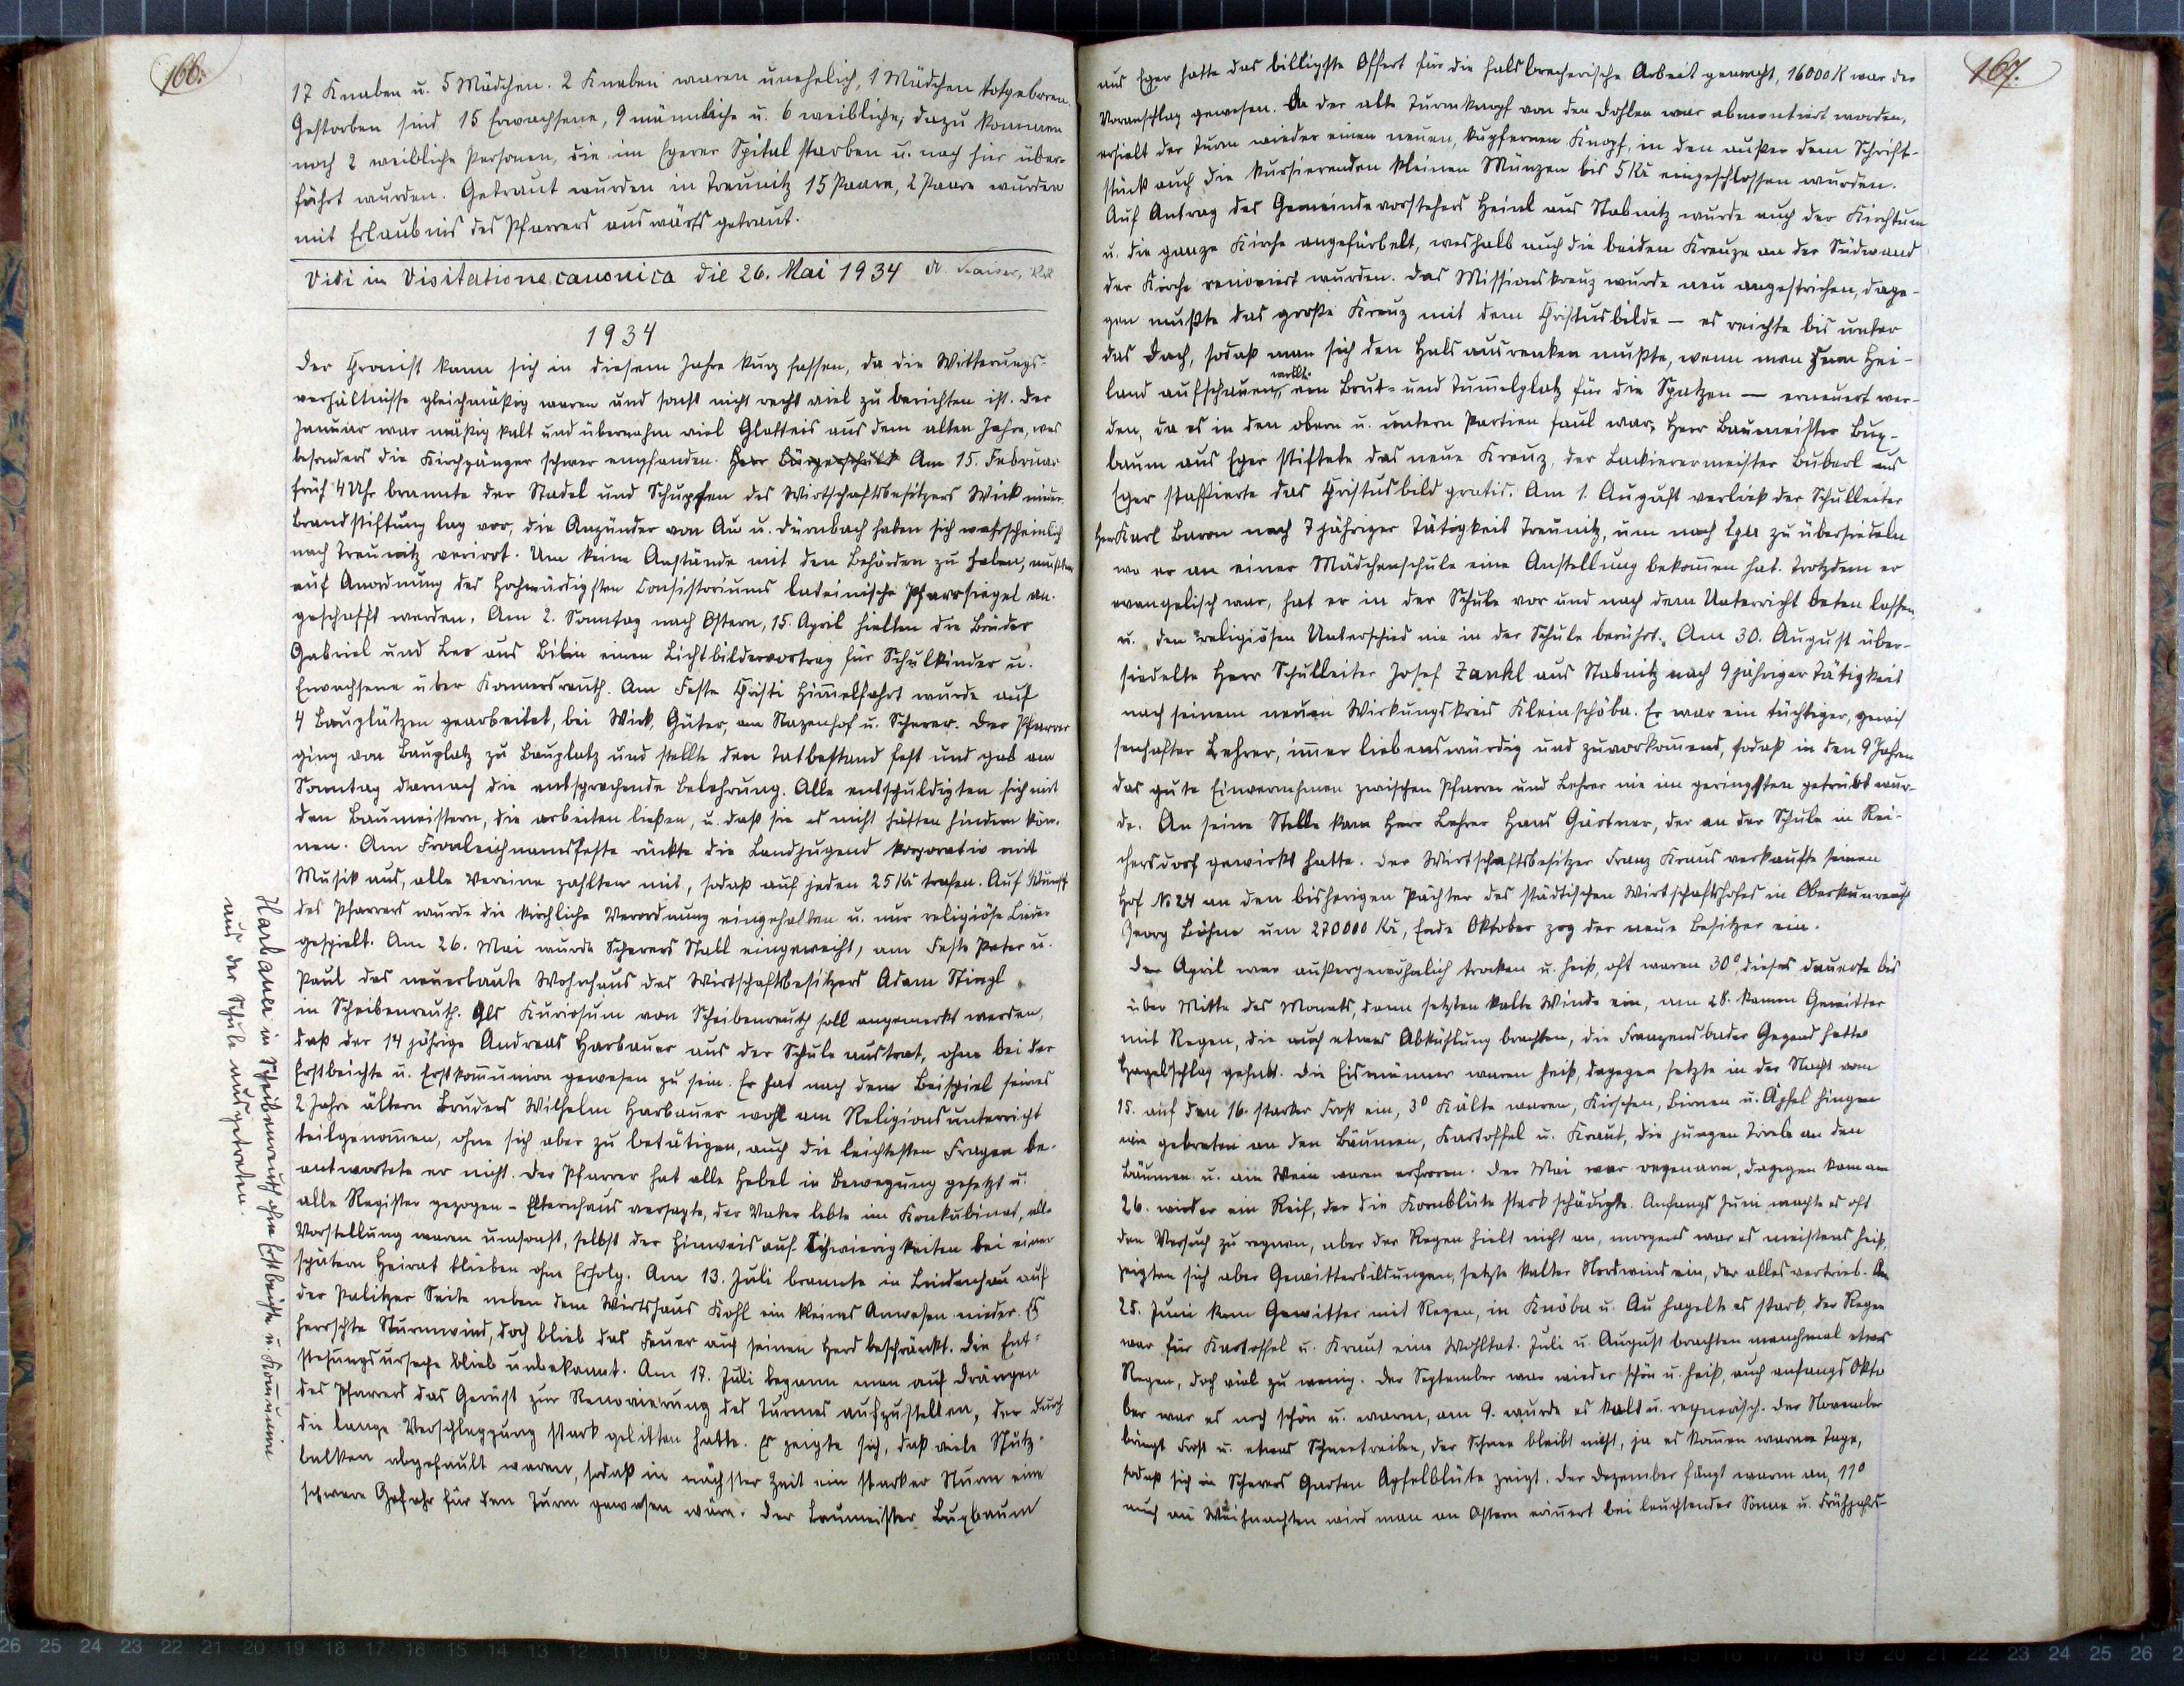 166.
17 Knaben u. 5 Mädchen. 2 Knaben waren unehelich, 1 Mädchen totgeboren.
Gestorben sind 15 Erwachsene, 9 männliche u. 6 weibliche, dazu kommen
noch 2 weibliche Personen, die im Egerer Spital starben u. nach hier über-
führt wurden. Getraut wurden in Treunitz 15 Paare, 2 Paare wurden
mit Erlaubnis des Pfarrers auswärts getraut.
Vidi in Visitatione canonica die 26. Mai 1934
1934
Der Chronist kann sich in diesem Jahre kurz fassen, da die Witterungs-
verhältnisse gleichmäßig waren und sonst nicht recht viel zu berichten ist. Der
Januar war mäßig kalt und übernahm viel Glatteis aus dem alten Jahre, was
besonders die Kirchgänger schwer empfanden. Herr Bürgerschul Am 15. Februar
früh 4 Uhr brannte der Stadel und Schupfen des Wirtschaftsbesitzers Wick nieder.
Brandstiftung lag vor, die Anzünder von Au u. Dürnbach haben sich wahrscheinlich
nach Treunitz verirrt. Um keine Anstände mit den Behörden zu haben, mußten
auf Anordnung des Hochwürdigsten Consistoriums lateinische Pfarrsiegel an-
geschafft werden. Am 2. Sonntag nach Ostern, 15. April hielten die Brüder
Gabriel und Leo aus Bilin einen Lichtbildervortrag für Schulkinder u.
Erwachsene über Konnersreuth. Am Feste Christi Himmelfahrt wurde auf
4 Bauplätzen gearbeitet, bei Wick, Güter, am Nazenhof u. Scherer. Der Pfarrer
ging von Bauplatz zu Bauplatz und stellte den Tatbestand fest und gab am
Sonntag darnach die entsprechende Belehrung. Alle entschuldigten sich mit
den Baumeistern, die arbeiten ließen, u. daß sie es nicht hätten hindern kön-
nen. Am Fronleichnamsfeste rückte die Landjugend korporativ mit
Musik aus, alle Vereine zahlten mit, sodaß auf jeden 25 Kč trafen. Auf Wunsch
des Pfarrers wurde die kirchliche Verordnung eingehalten u. nur religiöse Lieder
gespielt. Am 26. Mai wurde Scherers Stall eingeweiht, am Feste Peter u.
Paul das neuerbaute Wohnhaus des Wirtschaftsbesitzers Adam Stingl
in Scheibenreuth. Als Kuriosum von Scheibenreuth soll angemerkt werden,
daß der 14 jährige Andreas Harbauer aus der Schule austrat, ohne bei der
Erstbeichte u. Erstkommunion gewesen zu sein. Er hat nach dem Beispiel seines
2 Jahre ältern Bruders Wilhelm Harbauer wohl am Religionsunterricht
teilgenommen, ohne sich aber zu betätigen, auch die leichtesten Fragen be-
antwortete er nicht. Der Pfarrer hat alle Hebel in Bewegung gesetzt u.
alle Register gezogen - Elternhaus versagte, der Vater lebte im Konkubinat, alle
Vorstellung waren umsonst, selbst der Hinweis auf Schwierigkeiten bei einer
spätern Heirat blieben ohne Erfolg. Am 13. Juli brannte in Lindenhau auf
der Palitzer Seite neben dem Wirtshaus Kohl ein kleines Anwesen nieder. Es
herrschte Sturmwind, doch blieb das Feuer auf seinen Herd beschränkt. Die Ent-
stehungsursache blieb unbekannt. Am 17. Juli begann man auf Drängen
des Pfarrers das Gerüst zur Renovierung des Turmes aufzustellen, der durch
die lange Verschleppung stark gelitten hatte. Es zeigte sich, daß viele Stütz-
balken abgefault waren, sodaß in nächster Zeit ein starker Sturm eine
schwere Gefahr für den Turm gewesen wäre. Der Baumeister Buxbaum
Harbauer in Scheibenreuth ohne Erstbeichte u. Kommunion
aus der Schule ausgetreten.
167.
aus Eger hatte das billigste Offert für die halsbrecherische Arbeit gemacht, 16000 K war der
Voranschlag gewesen. Da der alte Turmknopf von den Dohlen war abmontiert worden,
erhielt der Turm wieder einen neuen, kupfernen Knopf, in den außer dem Schrift-
stück auch die kursierenden kleinen Münzen bis 5 Kč eingeschlossen wurden.
Auf Antrag des Gemeindevorstehers Heinl aus Stabnitz wurde auch der Kirchturm
u. die ganze Kirche angefärbelt, weshalb auch die beiden Kreuze an der Südwand
der Kirche renoviert wurden. Das Missionskreuz wurde neu angestrichen, dage-
gen mußte das große Kreuz mit dem Christusbilde — es reichte bis unter
das Dach, sodaß man sich den Hals ausrenken mußte, wenn man zum Hei-
land aufschauen wollte, ein Brut- und Tummelplatz für die Spatzen — erneuert wer-
den, da es in den obern u. untern Partien faul war, Herr Baumeister Bux-
baum aus Eger stiftete das neue Kreuz, der Lackierermeister Buberl aus
Eger staffierte das Christusbild gratis. Am 1. August verließ der Schulleiter
Herr Karl Baron nach 7 jähriger Tätigkeit Treunitz, um nach Eger zu übersiedeln
wo er an einer Mädchenschule eine Anstellung bekommen hat. Trotzdem er
evangelisch war, hat er in der Schule vor und nach dem Unterricht beten lassen
u. den religiösen Unterschied nie in der Schule berührt. Am 30. August über-
siedelte Herr Schulleiter Josef Zankl aus Stabnitz nach 9 jähriger Tätigkeit
nach seinem neuen Wirkungskreis Kleinschöba. Er war ein tüchtiger, gewis
senhafter Lehrer, immer liebenswürdig und zuvorkommend, sodaß in den 9 Jahren
das gute Einvernehmen zwischen Pfarrer und Lehrer nie im geringsten getrübt wur-
de. An seine Stelle kam Herr Lehrer Hans Gärtner, der an der Schule in Rei-
chersdorf gewirkt hatte. Der Wirtschaftsbesitzer Franz Kraus verkaufte seinen
Hof № 24 an den bisherigen Pächter des städtischen Wirtschaftshofes in Oberkunreuth
Georg Böhm um 270000 Kč, Ende Oktober zog der neue Besitzer ein.
Der April war außergewöhnlich trocken u. heiß, oft waren 30°, dieses dauerte bis
über Mitte des Monats, dann setzten kalte Winde ein, am 28. kamen Gewitter
mit Regen, die auch etwas Abkühlung brachten, die Franzensbader Gegend hatte
Hagelschlag gehabt. Die Eismänner waren heiß, dagegen setzte in der Nacht vom
15. auf den 16. starker Frost ein, 3° Kälte waren, Kirschen, Birnen u. Äpfel hingen
wie gebraten an den Bäumen, Kartoffel u. Kraut, die jungen Triebe an den
Bäumen u. am Wein waren erfroren. Der Mai war regenarm, dagegen kam am
26. wieder ein Reif, der die Kornblüte stark schädigte. Anfangs Juni machte es oft
den Versuch zu regnen, aber der Regen hielt nicht an, morgens war es meistens heiß,
zeigten sich aber Gewitterbildungen, setzte kalter Nordwind ein, der alles vertrieb. Am
25. Juni kam Gewitter mit Regen, in Knöba u. Au hagelte es stark, der Regen
war für Kartoffel u. Kraut eine Wohltat. Juli u. August brachten manchmal etwas
Regen, doch viel zu wenig. Der September war wieder schön u. heiß, auch anfangs Okto
ber war es noch schön u. warm, am 9. wurde es kalt u. regnerisch. Der November
bringt Frost u. etwas Schneetreiben, der Schnee bleibt nicht, ja es kommen warme Tage,
sodaß sich in Scherers Garten Apfelblüte zeigt. Der Dezember fängt warm an, 11°
auch an Weihnachten wird man an Ostern erinnert bei leuchtender Sonne u. Frühjahrs-